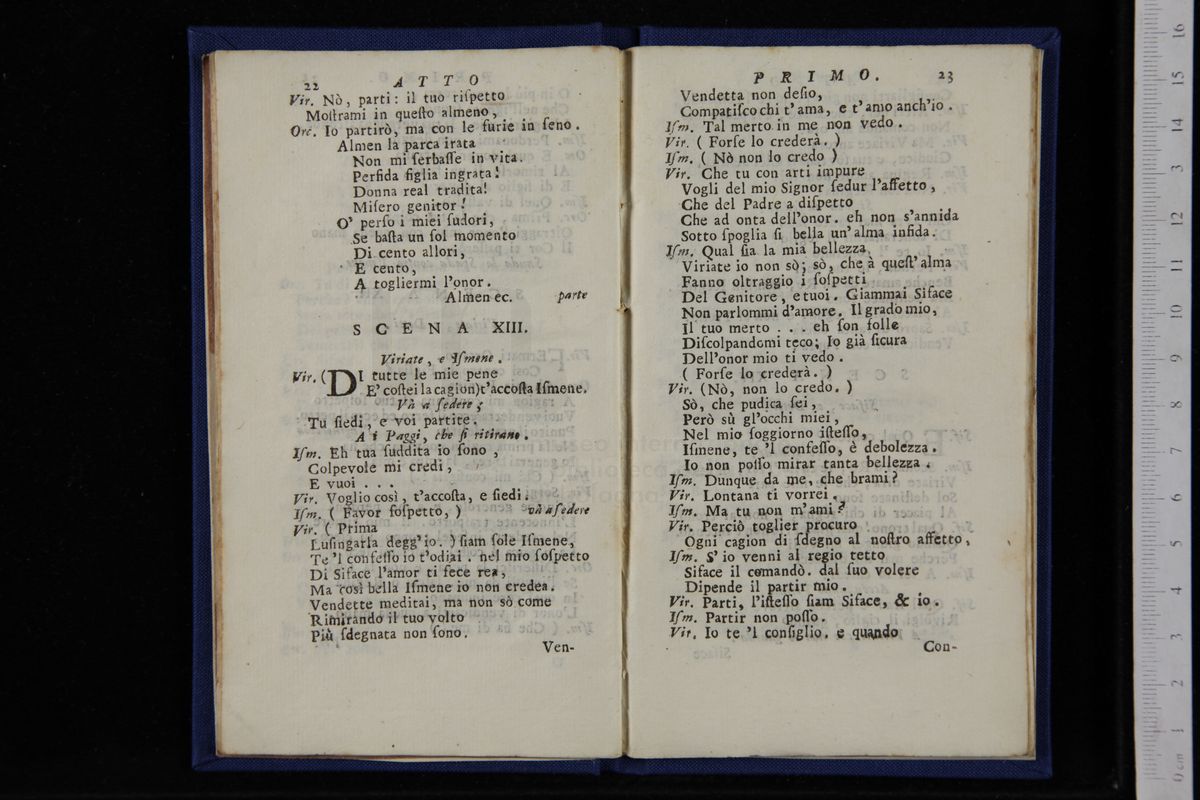 22 ATTO
Vir. Nò, parti: il tuo riſpetto
Moſtrami in queſto almeno,
Orc. Io partirò, ma con le furie in ſeno.
Almen la parca irata
Non mi ſerbaſſe in vita.
Perfida figlia ingrata!
Donna real tradita!
Miſero genitor!
O' perſo i miei ſudori,
Se baſta un ſol momento
Di cento allori,
E cento,
A togliermi l'onor.
Almen ec. parte
SCENA XIII.
Viriate, e Iſmene.
Vir. (DI tutte le mie pene
E' coſtei la cagion) t'accoſta Iſmene.
Và a ſedere;
Tu ſiedi, e voi partite.
A i Paggi, che ſi ritirano.
Iſm. Eh tua ſuddita io ſono,
Colpevole mi credi,
E vuoi . . .
Vir. Voglio così, t'accoſta, e ſiedi.
Iſm. ( Favor ſoſpetto, ) và à ſedere
Vir. ( Prima
Luſingarla degg'io. ) ſiam ſole Iſmene,
Te 'l confeſſo io t'odiai. nel mio ſoſpetto
Di Siface l'amor ti fece rea,
Ma così bella Iſmene io non credea.
Vendette meditai, ma non sò come
Rimirando il tuo volto
Più ſdegnata non ſono.
Ven-
PRIMO. 23
Vendetta non deſio,
Compatiſco chi t'ama, e t'amo anch'io.
Iſm. Tal merto in me non vedo.
Vir. ( Forſe lo crederà. )
Iſm. ( Nò non lo credo )
Vir. Che tu con arti impure
Vogli del mio Signor ſedur l'affetto,
Che del Padre a diſpetto
Che ad onta dell'onor. eh non s'annida
Sotto ſpoglia ſi bella un'alma infida.
Iſm. Qual ſia la mia bellezza
Viriate io non sò; sò, che à queſt'alma
Fanno oltraggio i ſoſpetti
Del Genitore, e tuoi. Giammai Siface
Non parlommi d'amore. Il grado mio,
Il tuo merto . . . eh ſon folle
Diſcolpandomi teco; Io già ſicura
Dell'onor mio ti vedo.
( Forſe lo crederà. )
Vir. (Nò, non lo credo. )
Sò, che pudica ſei,
Però sù gl'occhi miei,
Nel mio ſoggiorno iſteſſo,
Iſmene, te 'l confeſſo, è debolezza.
Io non poſſo mirar tanta bellezza.
Iſm. Dunque da me, che brami?
Vir. Lontana ti vorrei.
Iſm. Ma tu non m'ami?
Vir. Perciò toglier procuro
Ogni cagion di ſdegno al noſtro affetto,
Iſm. S'io venni al regio tetto
Siface il comandò. dal ſuo volere
Dipende il partir mio.
Vir. Parti, l'iſteſſo ſiam Siface, & io.
Iſm. Partir non poſſo.
Vir. Io te 'l conſiglio. e quando
Con-